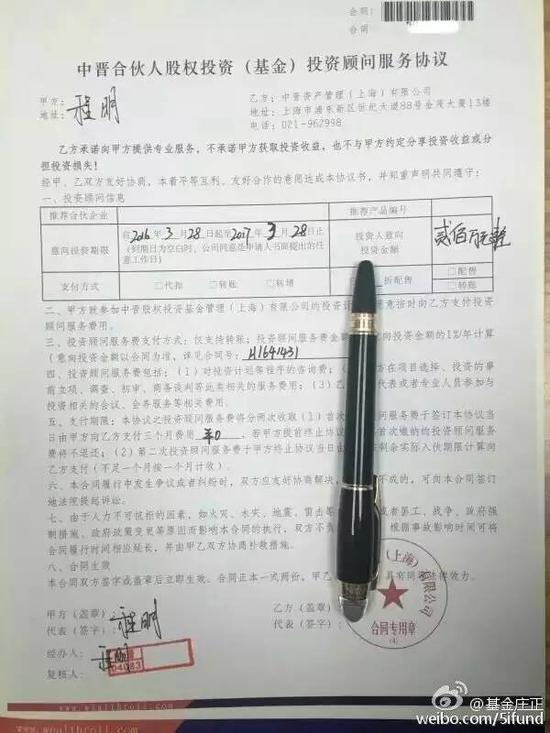 合同：
合同
中晋合伙人股权投资（基金）投资顾问服务协议
甲方：程明
地址：
乙方：中晋资产管理（上海）有限公司
地址：上海市浦东新区世纪大道88号金茂大厦13楼
电话：021-962998
乙方承诺向甲方提供专业服务，不承诺甲方获取投资收益，也不与甲方约定分享投资收益或分
担投资损失！
经甲、乙双方友好协商，本着平等互利、友好合作的意愿达成本协议书，并郑重声明共同遵守：
一、投资顾问信息
推荐合伙企业 推荐产品编号
意向投资期限 自2016年3月28日起至2017年3月28日止
(到期日为空白时，公司同意是申请人书面提出的任
意工作日) 投资人意向
投资金额 贰佰万元整
支付方式 □ 代扣 □ 转账 □ 转增 折配售 □ 配售
□ 转账
二、甲方就参加中晋股权投资基金管理（上海）有限公司的投资计 意按时向乙方支付投资
顾问服务费用。
三、投资顾问服务费支付方式：仅支持转账；投资顾问服务费金额 向投资金额的1%/年计算
（意向投资金额以合同为准，详见合同号：H1641431
四、投资顾问服务费包括：（1）对投资计划等程序的咨询费；（ 方在项目选择、投资的事
前立项、调查、初审、商务谈判等此类相关的服务费用；（3）乙 代表或者专业人员参加与
投资相关的会议、会务服务等相关费用。
五、支付期限：本协议之投资顾问服务费将分两次收取（1）首次 问服务费于签订本协议当
日由甲方向乙方支付三个月费用 ¥0 ，若甲方提前终止协议 首次缴纳的投资顾问服务
费将不退还；（2）第二次投资顾问服务费于甲方终止协议当日由 剩余实际入伙期限计算向
乙方支付（不足一个月按一个月计收）。
六、本合同履行中发生争议或者纠纷时，双方应友好协商解决， 不成的，可向本合同签订
地法院提起诉讼。
七、由于人力不可抗拒的因素，如火灾、水灾、地震、雷击等 或者罢工、战争、政府强
制措施、政府政策变更等原因而影响本合同的执行，双方不负 根据事故影响时间可将
合同履行时间相应延长，并由甲乙双方协商补救措施。
八、合同生效
本合同双方签字或盖章后立即生效。合同正本一式两份，甲乙 具有同等法律效力。
甲方（盖章） 乙方（盖章）
代表（签字）：程明 代表（签字）：
经办人：程明
复核人：
04083
（上海）有限公司
合同专用章
(4)
www.wealthroll.com
www.wealthroll.com
@基金庄正
weibo.com/5ifund